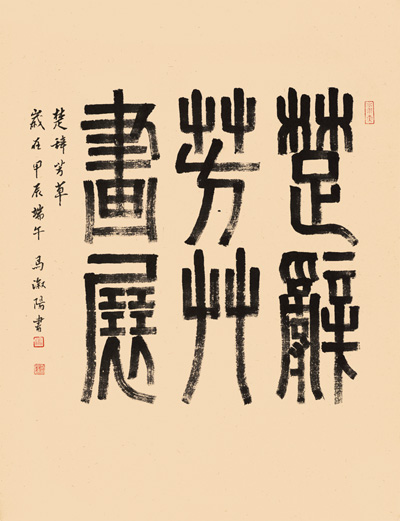 楚辭
芳艸
畫展
楚辞芳草
歲在甲辰端午 马淑陽書